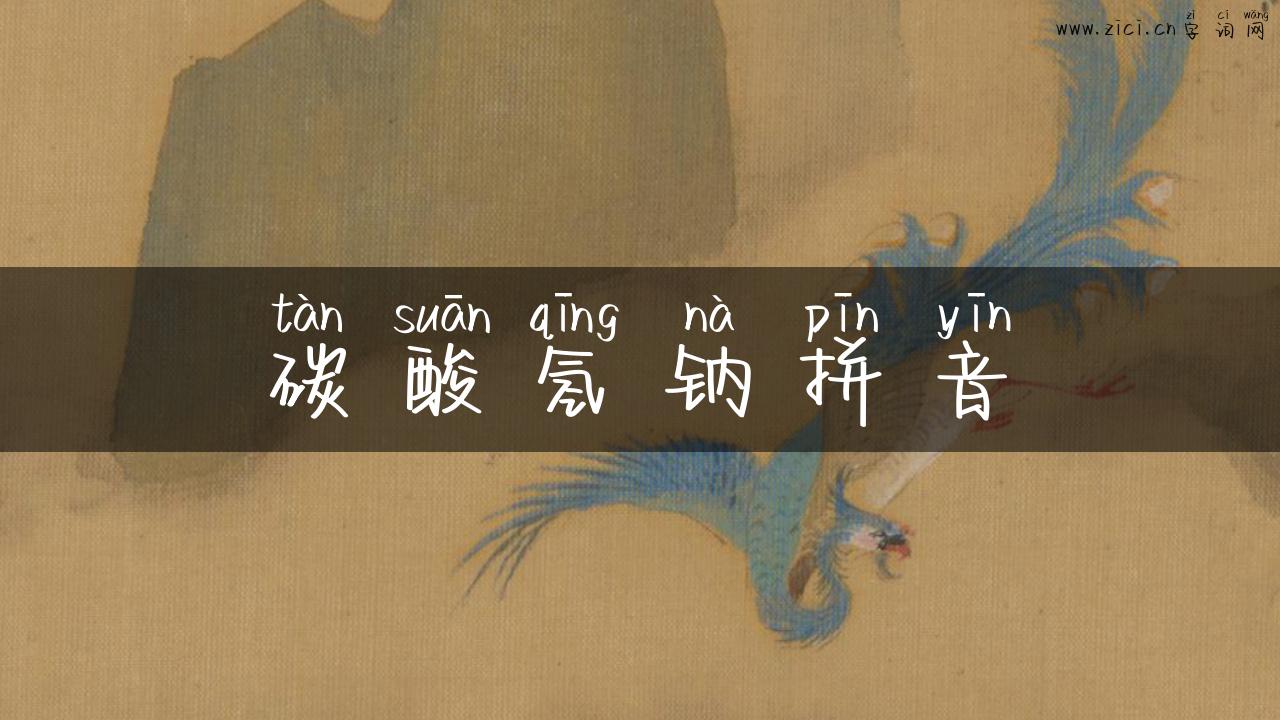 zì cí wǎng
www.zici.cn 字词网
tàn suān qīng nà pīn yīn
碳酸氢钠拼音